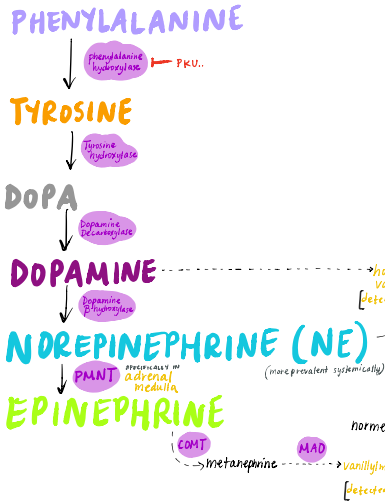 PHENYLALANINE
phenylalanine
hydroxylase
PKU..
TYROSINE
Tyrosine
hydroxylase
DOPA
Dopamine
Decarboxylase
DOPAMINE
ho
va
[detec
Dopamine
β-hydroxylase
NOREPINEPHRINE (NE)
(more prevalent systemically)
PMNT
SPECIFICALLY IN
adrenal
medulla
EPINEPHRINE
norme
COMT
metanephrine
MAO
vanillylm
[detecte